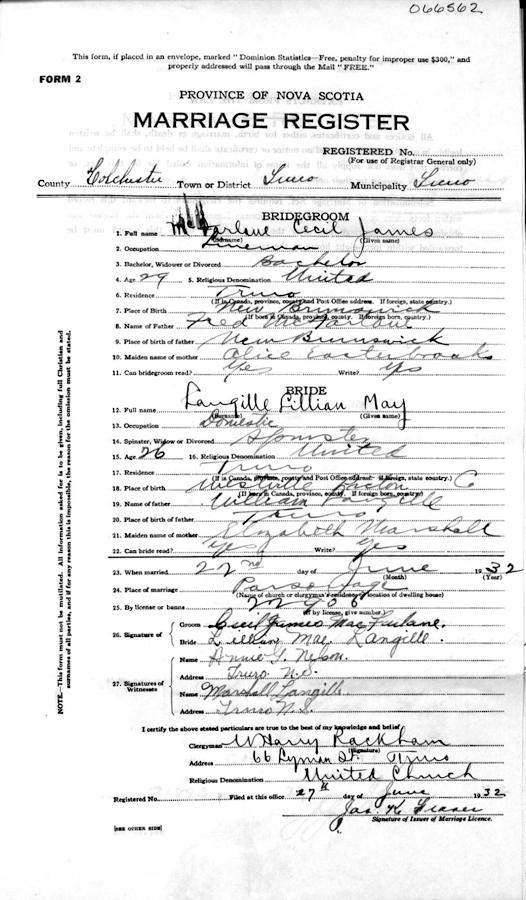 066562
This form, if placed in an envelope, marked "Dominion Statistics—Free, penalty for improper use $300," and
properly addressed will pass through the Mail "FREE."
FORM 2
PROVINCE OF NOVA SCOTIA
MARRIAGE REGISTER
REGISTERED No.
(For use of Registrar General only)
County Colchester Town or District Truro Municipality Truro
BRIDEGROOM
1. Full name McFarlane Cecil James
(Surname) (Given name)
2. Occupation Lineman
3. Bachelor, Widower or Divorced Bachelor
4. Age 29 5. Religious Denomination United
6. Residence Truro
(If in Canada, province, county and Post Office address. If foreign, state country)
7. Place of Birth New Brunswick
(If born in Canada, province, county. If foreign born, country)
8. Name of Father Fred McFarlane
9. Place of birth of father New Brunswick
10. Maiden name of mother Alice Easterbrooks
11. Can bridegroom read? Yes Write? Yes
BRIDE
12. Full name Langille Lillian May
(Surname) (Given name)
13. Occupation Domestic
14. Spinster, Widow or Divorced Spinster
15. Age 26 16. Religious Denomination United
17. Residence Truro
(If in Canada, province, county and Post Office address. If foreign, state country)
18. Place of birth Westville Pictou C
(If born in Canada, province, county. If foreign born, country)
19. Name of father William Langille
20. Place of birth of father Truro
21. Maiden name of mother Elizabeth Marshall
22. Can bride read? Yes Write? Yes
23. When married 22nd day of June 1932
(Month) (Year)
24. Place of marriage Parsonage
(Name of church or clergyman's residence, or location of dwelling house)
25. By license or banns
(If by license, give number)
26. Signature of Groom Cecil James MacFarlane.
Bride Lillian Mae Langille.
27. Signatures of Witnesses
Name Annie G. Nelson.
Address Truro N.S.
Name Marshall Langille
Address Truro N.S.
I certify the above stated particulars are true to the best of my knowledge and belief
Clergyman W Harry Rackham
(Signature)
Address 66 Lyman St. Truro
Religious Denomination United Church
Registered No. Filed at this office 27th day of June 1932
Jas. K. Fraser
Signature of Issuer of Marriage Licence.
[SEE OTHER SIDE]
NOTE.—This form must not be mutilated. All information asked for is to be given, including full Christian and
surnames of all parties, and if for any reason this is impossible, the reason for the omission must be stated.